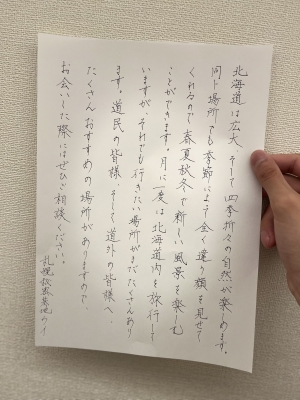 北海道は広大、そして四季折々の自然が楽しめます。
同じ場所でも季節によって全く違う顔を見せて
くれるので春夏秋冬で新しい風景を楽しむ
ことができます。月に一度は北海道内を旅行して
いますが、それでも行きたい場所がまだたくさんあり
ます。道民の皆様、そして道外の皆様へ、
たくさんおすすめの場所がありますので、
お会いした際にはぜひご相談ください。
札幌